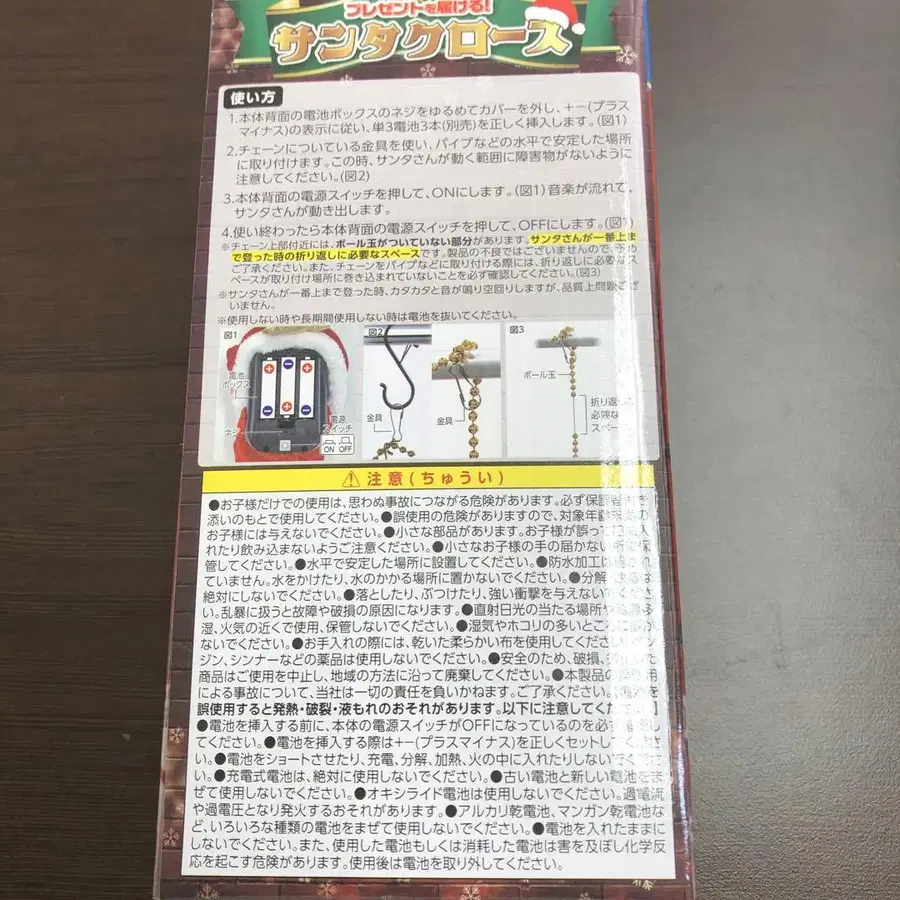 プレゼントを届ける!
サンタクロース
使い方
1.本体背面の電池ボックスのネジをゆるめてカバーを外し、+−(プラス
マイナス)の表示に従い、単3電池3本(別売)を正しく挿入します。(図1)
2.チェーンについている金具を使い、パイプなどの水平で安定した場所
に取り付けます。この時、サンタさんが動く範囲に障害物がないように
注意してください。(図2)
3.本体背面の電源スイッチを押して、ONにします。(図1)音楽が流れて、
サンタさんが動き出します。
4.使い終わったら本体背面の電源スイッチを押して、OFFにします。
※チェーン上部付近には、ボール玉がついていない部分があります。サンタさんが一番上ま
で登った時の折り返しに必要なスペースです。製品の不良ではございませんので、予め
ご了承ください。また、チェーンをパイプなどに取り付ける際には、折り返しに必要なス
ペースが取り付け場所に巻き込まれていないことを必ず確認してください。(図3)
※サンタさんが一番上まで登った時、カタカタと音が鳴り空回りしますが、品質上問題ござ
いません。
※使用しない時や長期間使用しない時は電池を抜いてください。
図1
電池
ボックス
ネジ
電源
スイッチ
ON OFF
図2
金具
金具
図3
ボール玉
折り返しに
必要な
スペース
注意(ちゅうい)
●お子様だけでの使用は、思わぬ事故につながる危険があります。必ず保護者
添いのもとで使用してください。●誤使用の危険がありますので、対象年齢未満の
お子様には与えないでください。●小さな部品があります。お子様が誤って口に入
れたり飲み込まないようご注意ください。●小さなお子様の手の届かない所に保
管してください。●水平で安定した場所に設置してください。●防水加工は
ていません。水をかけたり、水のかかる場所に置かないでください。●分解、
絶対にしないでください。●落としたり、ぶつけたり、強い衝撃を与えないでくださ
い。乱暴に扱うと故障や破損の原因になります。●直射日光の当たる場所や高温多
湿、火気の近くで使用、保管しないでください。●湿気やホコリの多いところに
ないでください。●お手入れの際には、乾いた柔らかい布を使用してください。ベン
ジン、シンナーなどの薬品は使用しないでください。●安全のため、破損、
商品はご使用を中止し、地域の方法に沿って廃棄してください。●本製品の
による事故について、当社は一切の責任を負いかねます。ご了承ください。【電池を
誤使用すると発熱・破裂・液もれのおそれがあります。以下に注意してください】
●電池を挿入する前に、本体の電源スイッチがOFFになっているのを必ず確認し
てください。●電池を挿入する際は+−(プラスマイナス)を正しくセットしてくださ
い。●電池をショートさせたり、充電、分解、加熱、火の中に入れたりしないでくださ
い。●充電式電池は、絶対に使用しないでください。●古い電池と新しい電池をま
ぜて使用しないでください。●オキシライド電池は使用しないでください。過電流
や過電圧となり発火するおそれがあります。●アルカリ乾電池、マンガン乾電池な
ど、いろいろな種類の電池をまぜて使用しないでください。●電池を入れたままに
しないでください。また、使用した電池もしくは消耗した電池は害を及ぼし化学反
応を起こす危険があります。使用後は電池を取り外してください。